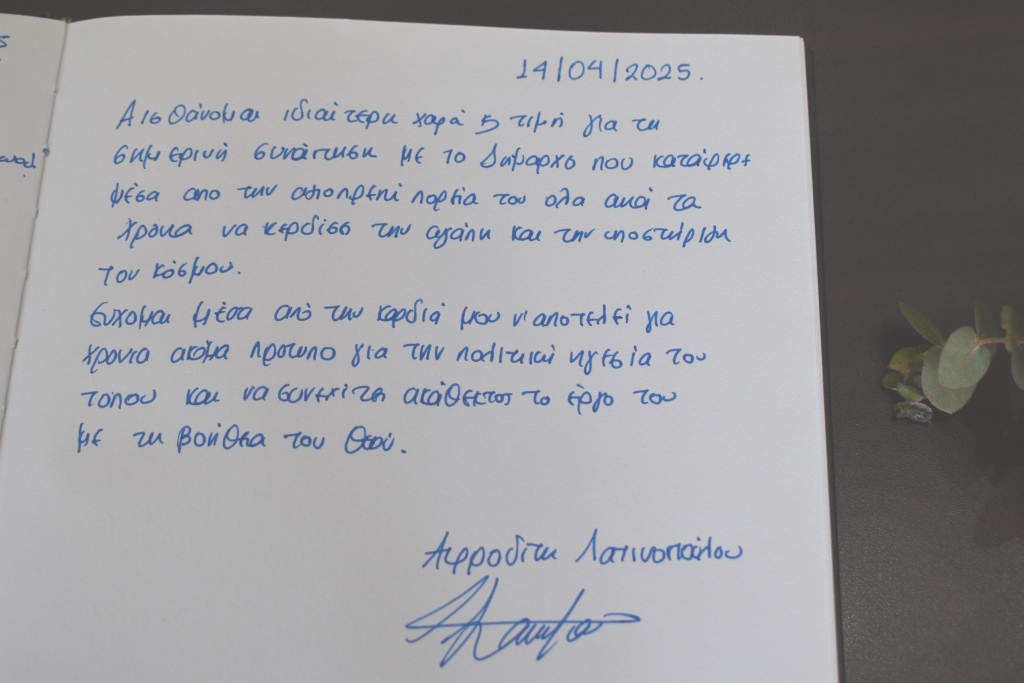 14/04/2025.
Αισθάνομαι ιδιαίτερη χαρά & τιμή για τη
σημερινή συνάντηση με το Δήμαρχο που κατάφερε
μέσα απο την πορεία του ολα αυτά τα
χρόνια να κερδίσει την αγάπη και την υποστήριξη
του κόσμου.
Ευχομαι μέσα από την καρδιά μου ν' αποτελεί για
χρονια ακόμα προτυπο για την πολιτική ηγεσία του
τοπου και να συνεχίζει ακάθεκτος το έργο του
με τη βοήθεια του Θεού.
Αφροδίτη Λατινοπούλου